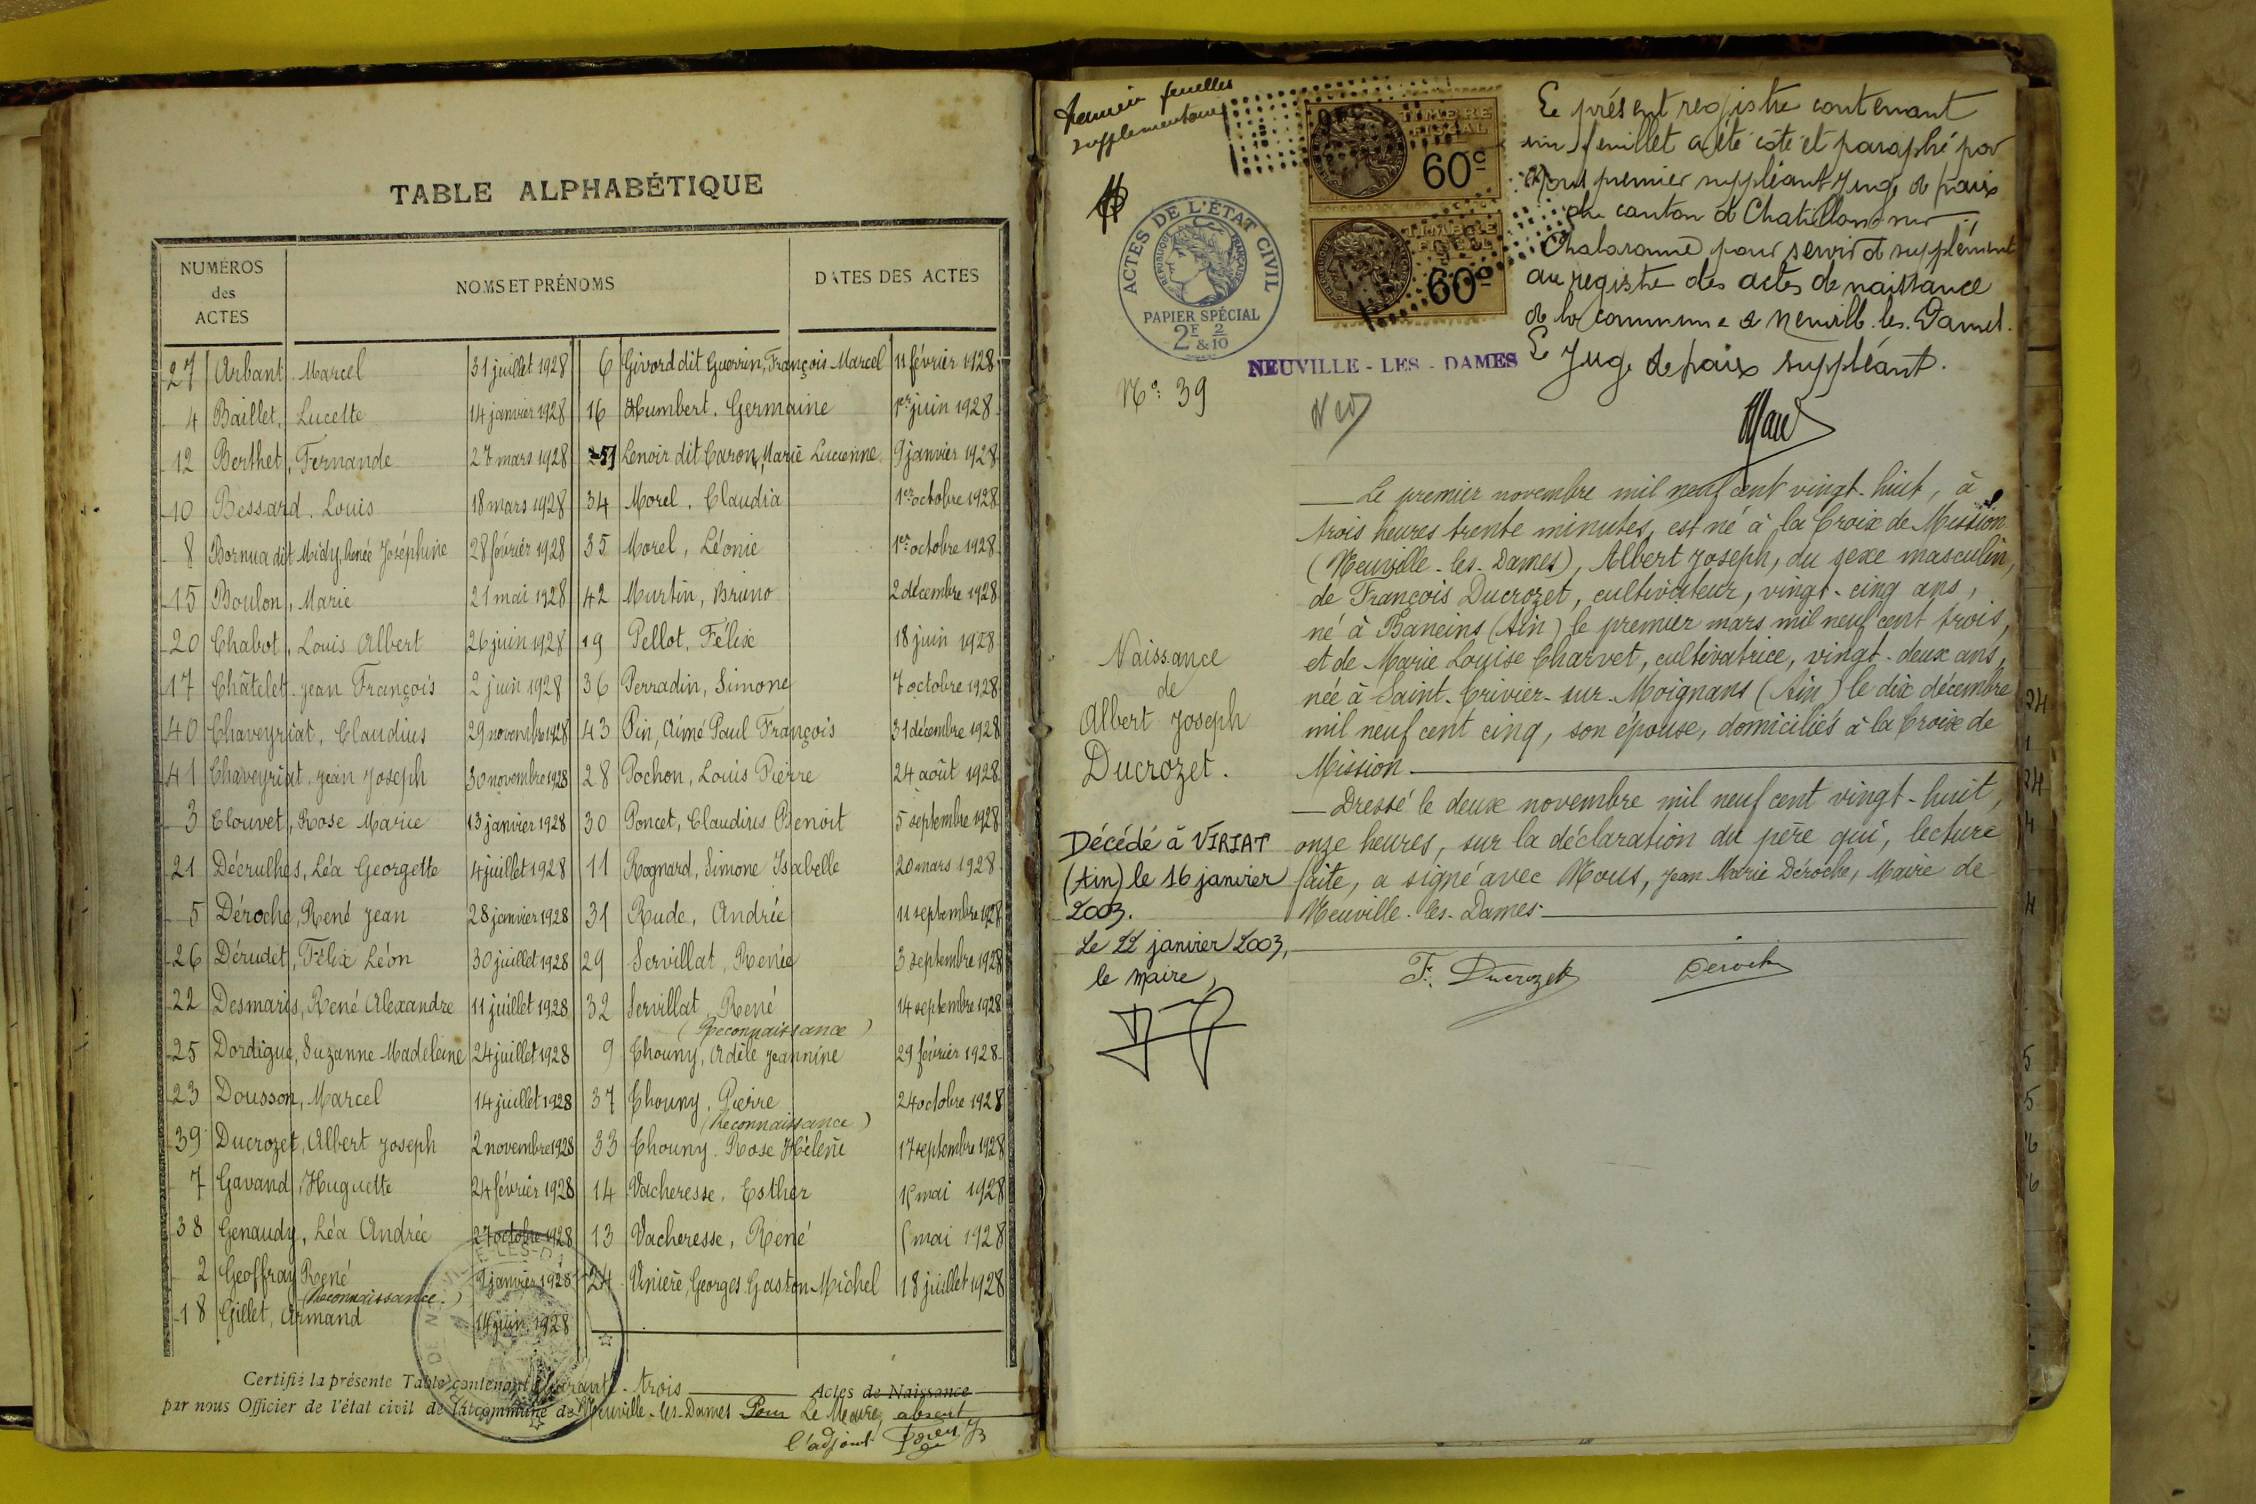 TABLE ALPHABÉTIQUE
NUMÉROS des ACTES
NOMS ET PRÉNOMS
DATES DES ACTES
27 Arbant Marcel 31 juillet 1928
4 Baillet, Lucette 14 janvier 1928
12 Berthet, Fernande 27 mars 1928
10 Bessard. Louis 18 mars 1928
8 Bornua dit Midy, Renée Joséphine 28 février 1928
15 Boulon, Marie 21 mai 1928
20 Chabot, Louis Albert 26 juin 1928
17 Châtelet Jean François 2 juin 1928
40 Chaveyriat, Claudius 29 novembre 1928
41 Chaveyriat, Jean Joseph 30 novembre 1928
3 Clouvet, Rose Marie 13 janvier 1928
21 Décrulhes, Léa Georgette 4 juillet 1928
5 Déroche, René Jean 28 janvier 1928
26 Dérudet, Félix Léon 30 juillet 1928
22 Desmaris, René Alexandre 11 juillet 1928
25 Dordigue, Suzanne Madeleine 24 juillet 1928
23 Dousson, Marcel 14 juillet 1928
39 Ducrozet, Albert Joseph 2 novembre 1928
7 Gavand, Huguette 24 février 1928
38 Genaudy, Léa Andrée 27 octobre 1928
2 Geoffray René 9 janvier 1928
(Reconnaissance.)
18 Gillet, Armand 14 juin 1928
6 Givord dit Guerrin, François Marcel 11 février 1928
16 Humbert. Germaine 1er juin 1928
Lenoir dit Caron, Marie Lucienne 9 janvier 1928
34 Morel, Claudia 1er octobre 1928
35 Morel, Léonie 1er octobre 1928
42 Murtin, Bruno 2 décembre 1928
19 Pellot, Félix 18 juin 1928
36 Perradin, Simone 7 octobre 1928
43 Pin, Aimé Paul François 31 décembre 1928
28 Pochon, Louis Pierre 24 août 1928
30 Poncet, Claudius Benoit 5 septembre 1928
11 Rognard, Simone Isabelle 20 mars 1928
31 Rude, Andrée 11 septembre 1928
29 Servillat, Renée 3 septembre 1928
32 Servillat, René 14 septembre 1928
(Reconnaissance)
9 Chouny, Adèle Jeannine 29 février 1928
37 Chouny, Pierre 24 octobre 1928
(Reconnaissance)
33 Chouny. Rose Hélène 17 septembre 1928
14 Vacheresse, Esther mai 1928
13 Vacheresse, René mai 1928
24 Viniere, Georges Gaston Michel 18 juillet 1928
Certifié la présente Table contenant quarante-trois Actes de Naissance
par nous Officier de l'état civil de la commune de Neuville-les-Dames Pour Le Maire, absent
l'adjoint
feuilles
supplémentaires
ACTES DE L'ÉTAT CIVIL
RÉPUBLIQUE FRANÇAISE
PAPIER SPÉCIAL
2F 2/10
TIMBRE FISCAL
60c
TIMBRE FISCAL
60c
Le présent registre contenant
un feuillet a été coté et paraphé par
Nous premier suppléant Juge de paix
du canton de Chatillon sur
Chalaronne pour servir de supplément
au registre des actes de naissance
de la commune de Neuville-les-Dames.
Le Juge de paix suppléant.
NEUVILLE-LES-DAMES
N°: 39
Naissance
de
Albert Joseph
Ducrozet.
Décédé à VIRIAT
(Ain) le 16 janvier
2003.
Le 22 janvier 2003,
le maire,
Le premier novembre mil neuf cent vingt-huit, à
trois heures trente minutes, est né à la Croix de Mission
(Neuville-les-Dames), Albert Joseph, du sexe masculin,
de François Ducrozet, cultivateur, vingt-cinq ans,
né à Baneins (Ain) le premier mars mil neuf cent trois,
et de Marie Louise Charvet, cultivatrice, vingt-deux ans,
née à Saint-Trivier-sur-Moignans (Ain) le dix décembre
mil neuf cent cinq, son épouse, domiciliés à la Croix de
Mission
Dressé le deux novembre mil neuf cent vingt-huit,
onze heures, sur la déclaration du père qui, lecture
faite, a signé avec Nous, Jean Marie Déroche, Maire de
Neuville-les-Dames
F. Ducrozet Déroche